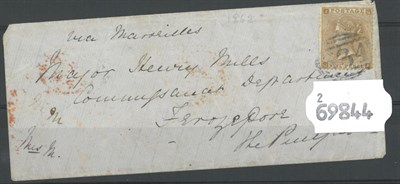 1862
via Marseilles
POSTAGE
Major Henry Mills
Commissariat Department
Ferozepore
The Punj
2
69844